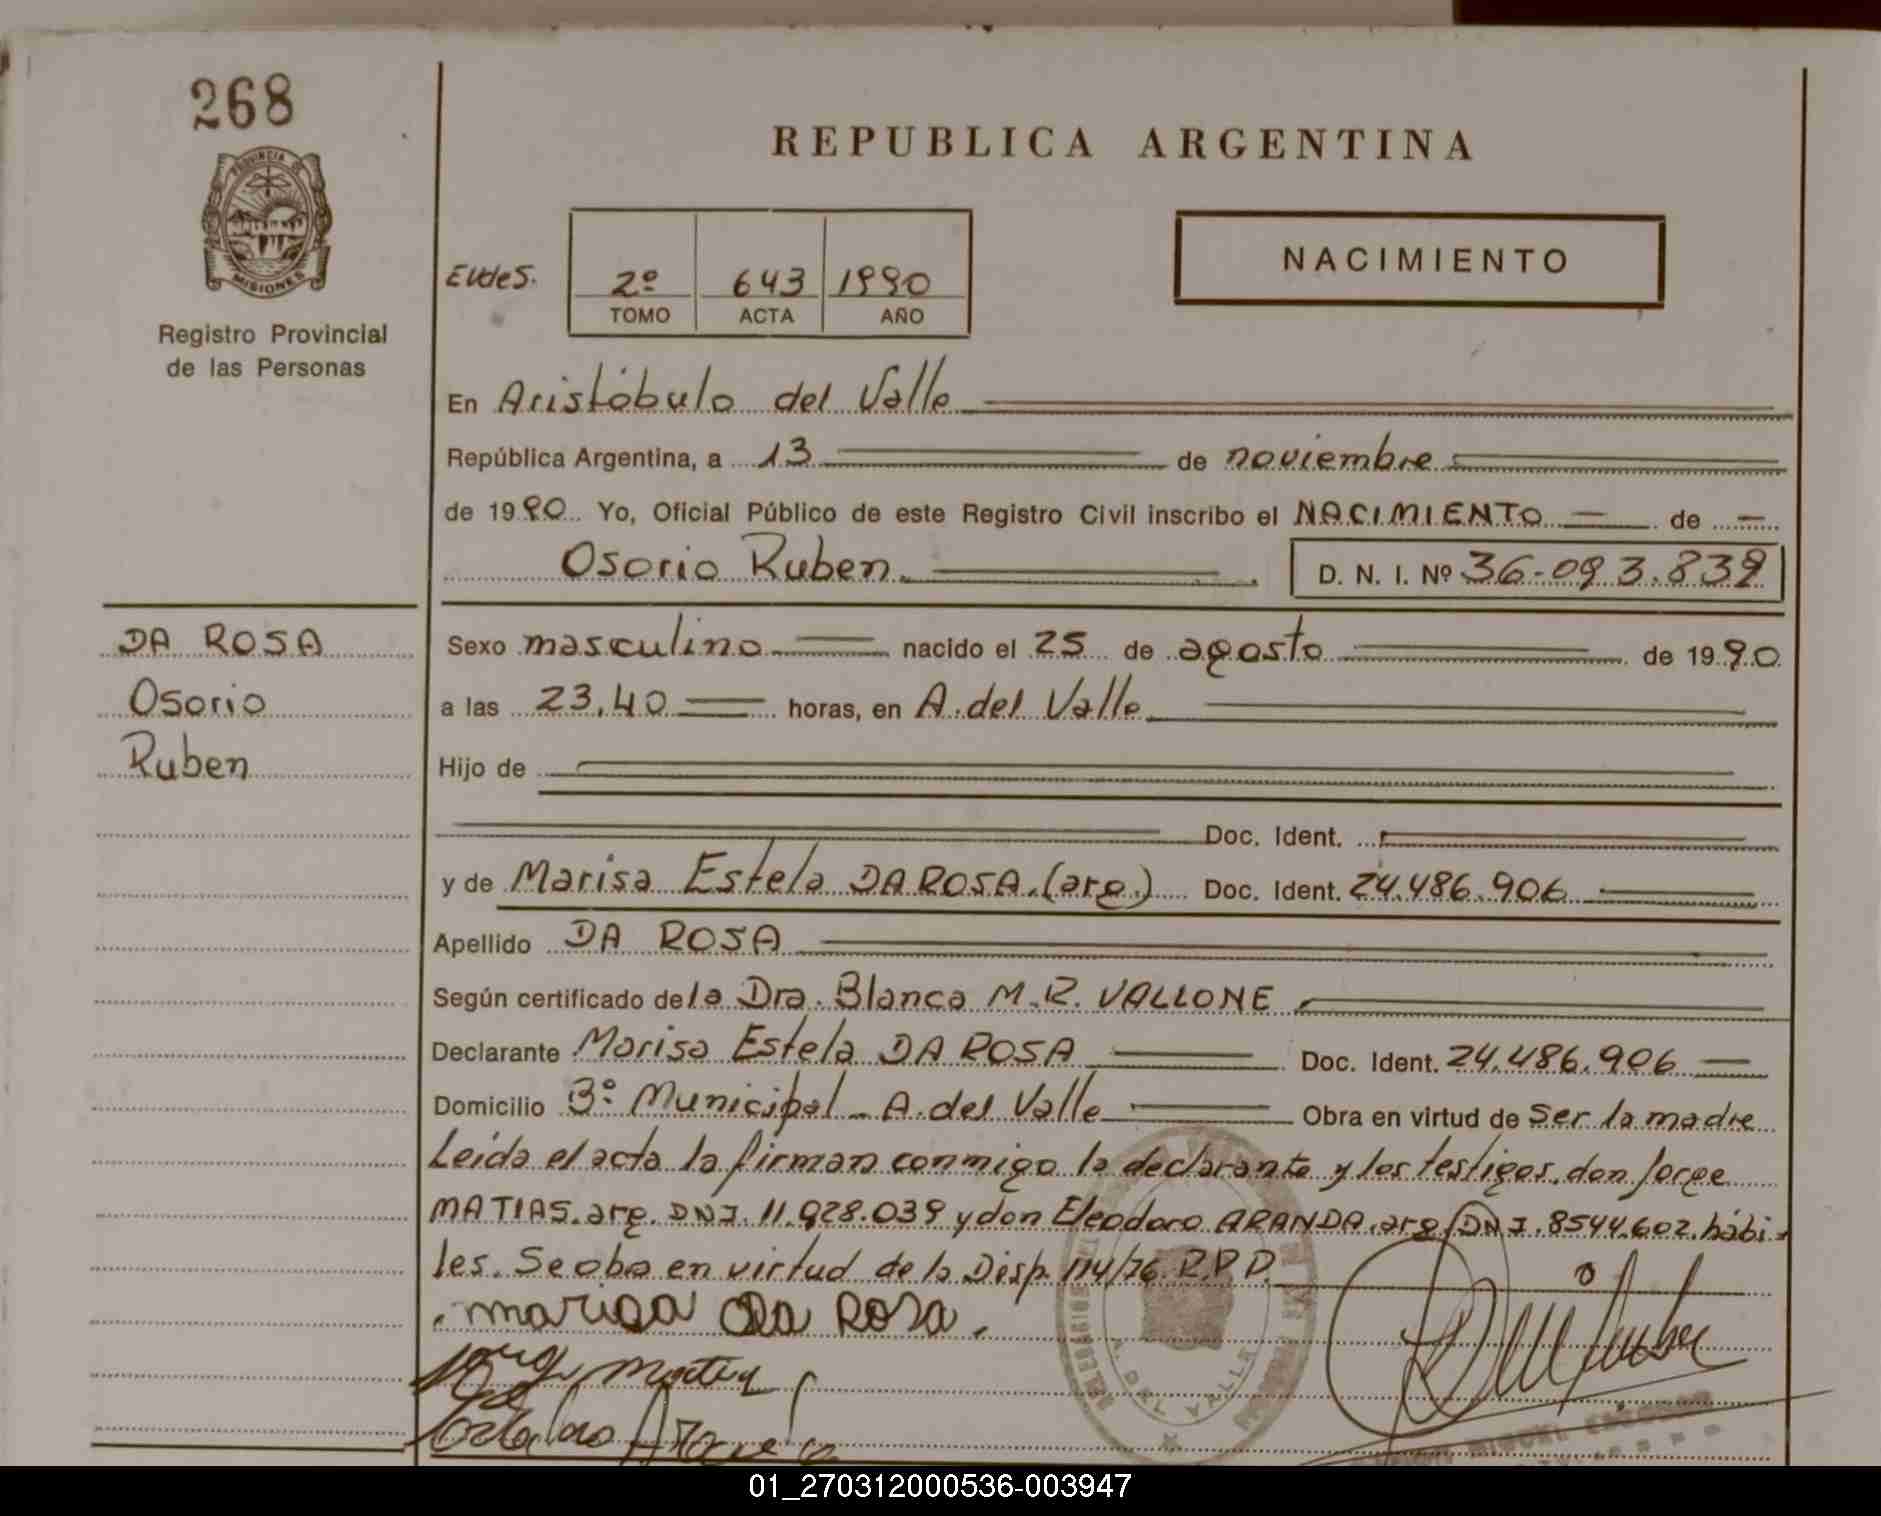 268
PROVINCIA D
MISIONES
Registro Provincial
de las Personas
REPUBLICA ARGENTINA
NACIMIENTO
EVdeS.
2º 643 1990
TOMO ACTA AÑO
En Aristóbulo del Valle
República Argentina, a 13 de noviembre
de 1990 Yo, Oficial Público de este Registro Civil inscribo el NACIMIENTO de
Osorio Ruben D. N. I. Nº 36-093.839
DA ROSA
Osorio
Ruben
Sexo masculino nacido el 25 de agosto de 1990
a las 23,40 horas, en A. del Valle
Hijo de
Doc. Ident.
y de Marisa Estela DA ROSA.(arg.) Doc. Ident. 24.486.906
Apellido DA ROSA
Según certificado de la Dra. Blanca M.R. VALLONE
Declarante Marisa Estela DA ROSA Doc. Ident. 24.486.906
Domicilio Bº Municipal - A. del Valle Obra en virtud de Ser la madre
Leída el acta la firman conmigo la declarante y los testigos, don Jorge
MATIAS. arg. DNI. 11.928.039 y don Eleodoro ARANDA. arg. DNI. 8544.602. hábi-
les. Se oba en virtud de la Disp. 114/76. R.P.P.
marisa da Rosa.
A. DEL VALLE
MIGUEL
01_270312000536-003947